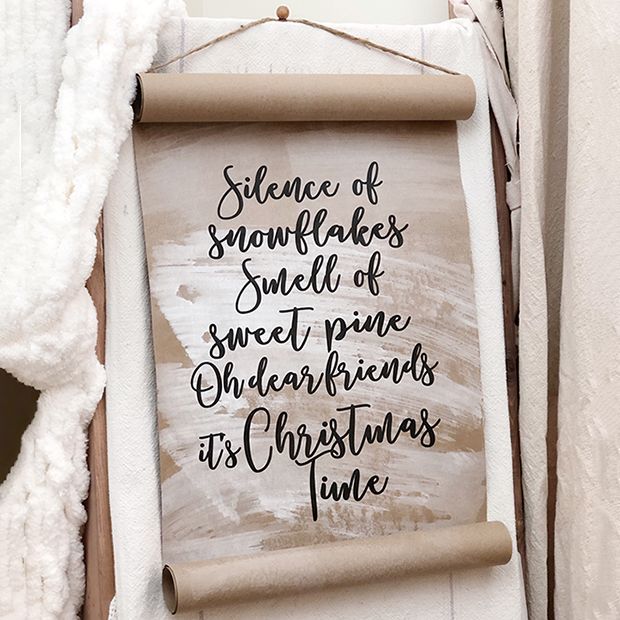 Silence of
snowflakes
Smell of
sweet pine
Oh dear friends
it's Christmas
Time